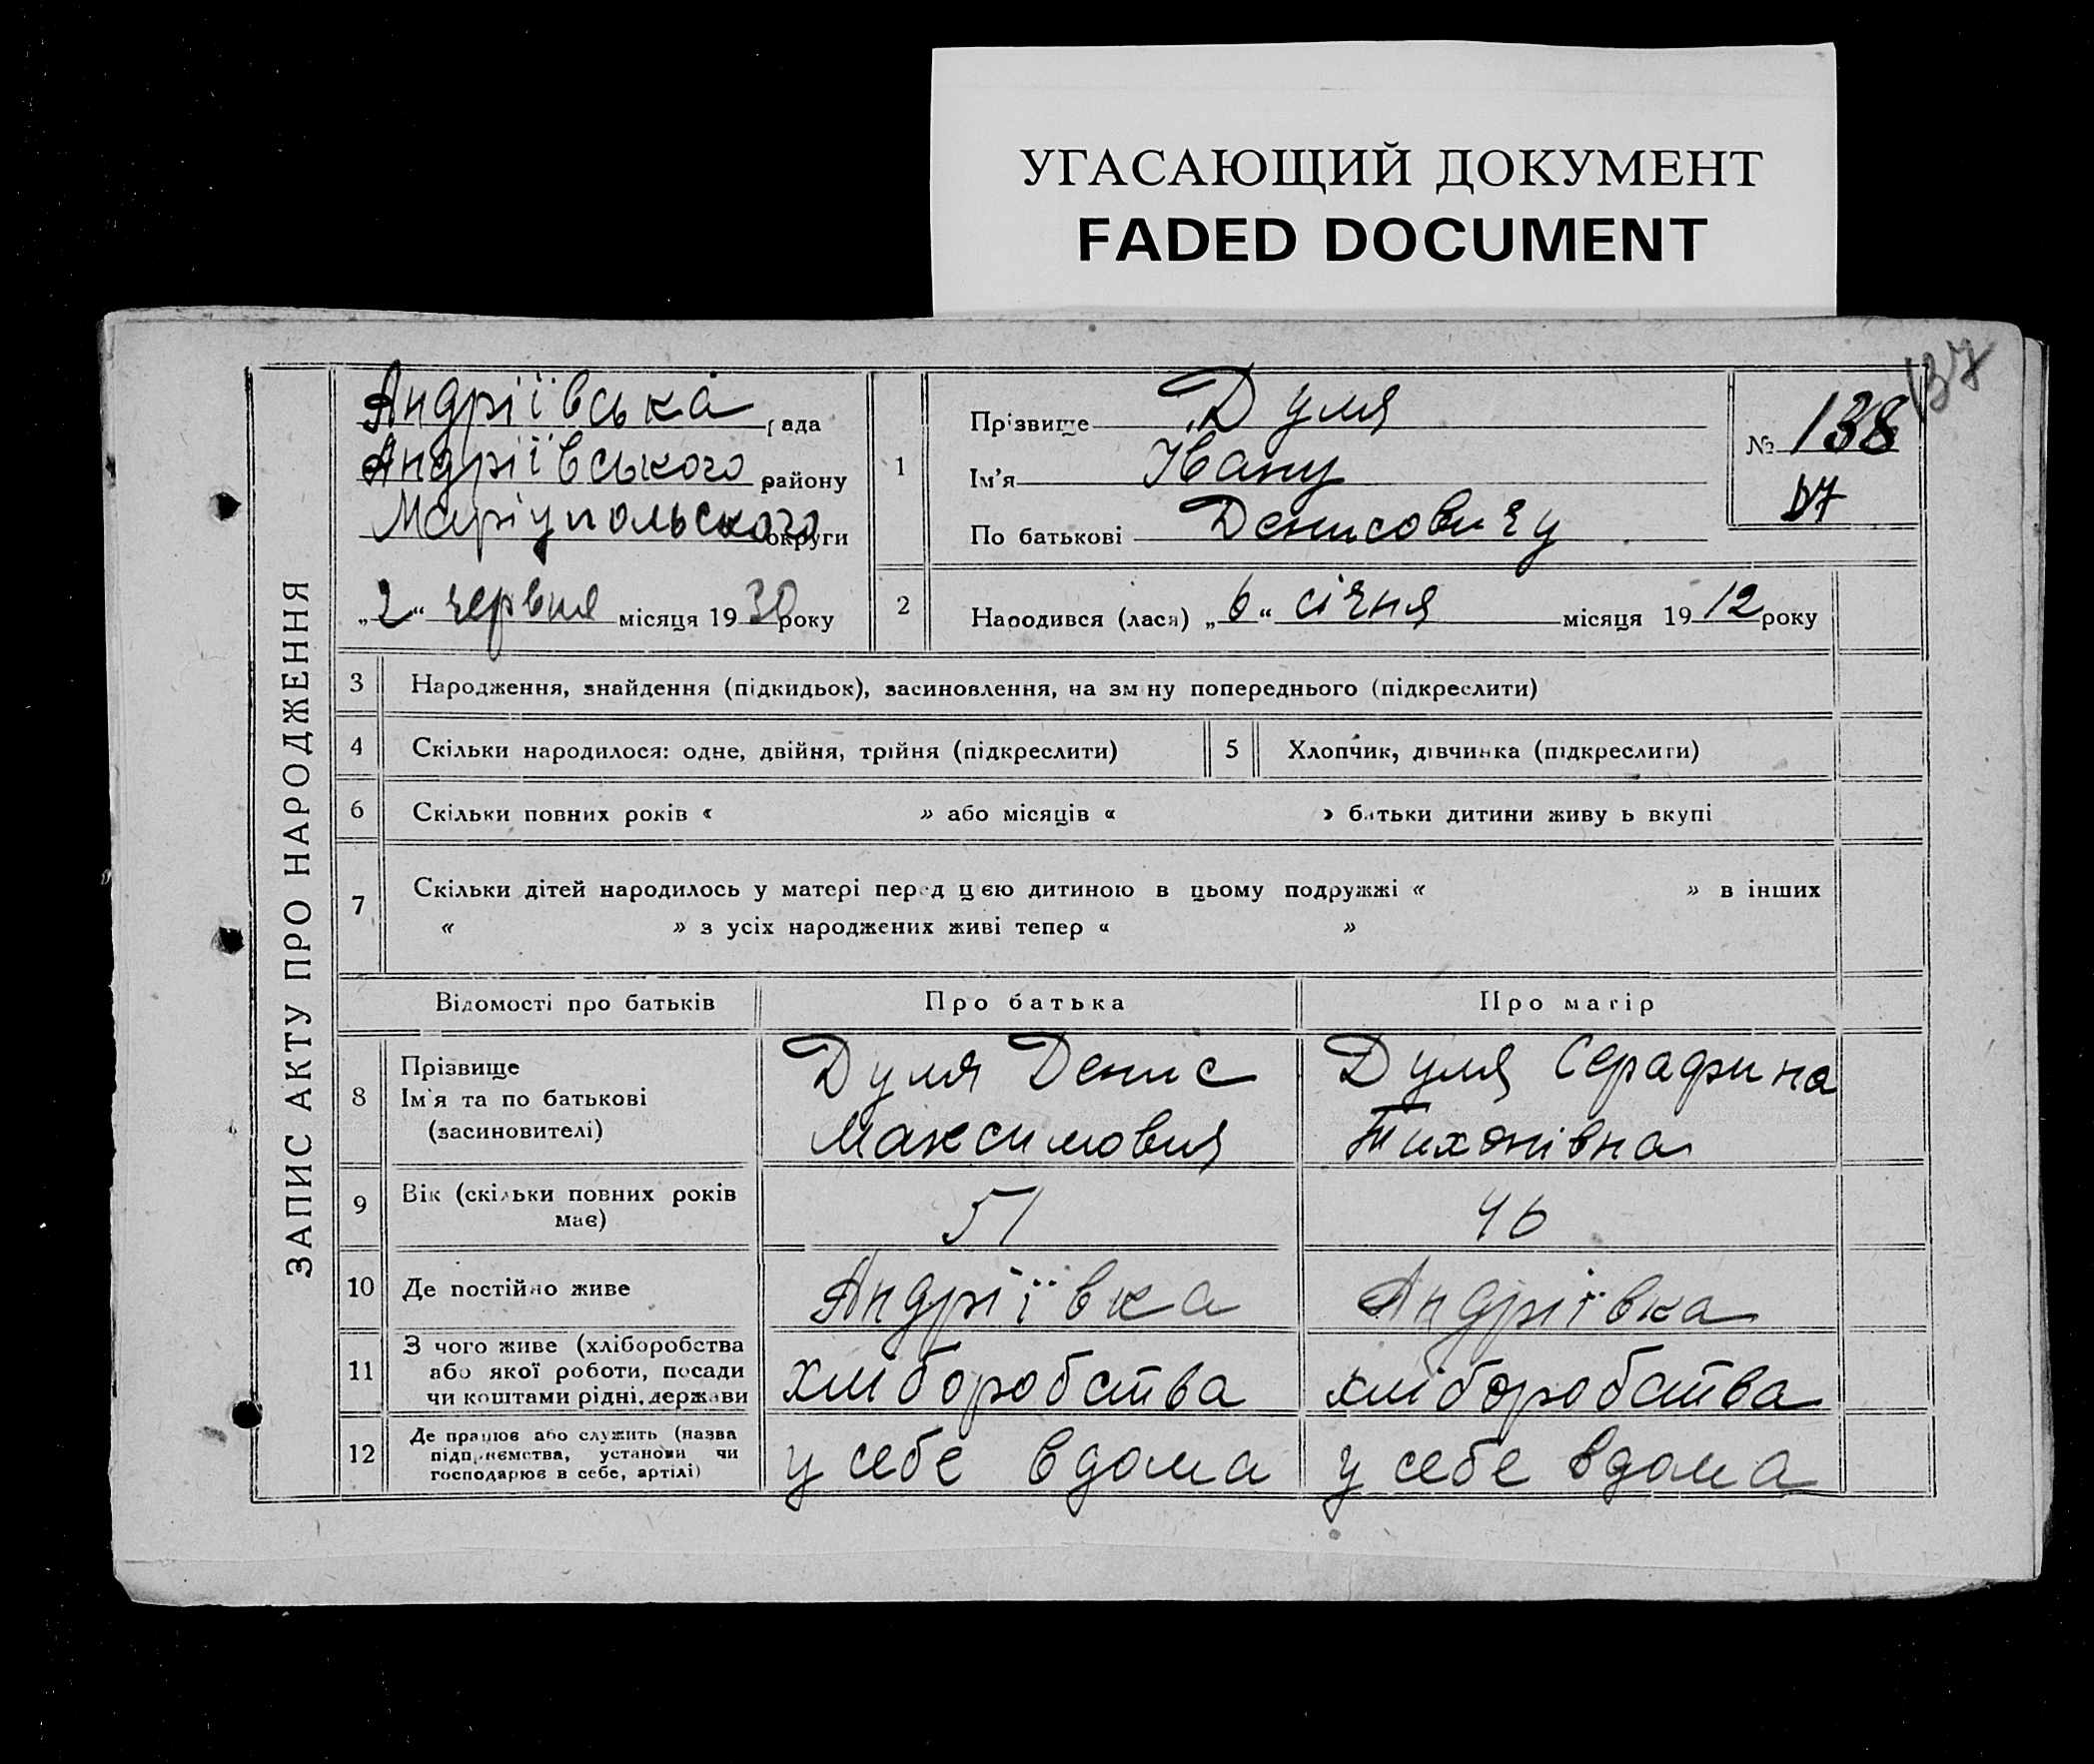 УГАСАЮЩИЙ ДОКУМЕНТ
FADED DOCUMENT
137
ЗАПИС АКТУ ПРО НАРОДЖЕННЯ
Андріївська рада
Андріївського району
Маріупольского округи
„2“ червня місяця 1930 року
1
Прізвище Дуля
Ім'я Івану
По батькові Денисовичу
№ 138
137
2 Народився (лася) „6“ січня місяця 1912 року
3 Народження, знайдення (підкидьок), засиновлення, на зміну попереднього (підкреслити)
4 Скільки народилося: одне, двійня, трійня (підкреслити) 5 Хлопчик, дівчинка (підкреслити)
6 Скільки повних років « » або місяців « » батьки дитини живуть вкупі
7 Скільки дітей народилось у матері перед цією дитиною в цьому подружжі « » в інших
« » з усіх народжених живі тепер « »
Відомості про батьків Про батька Про матір
8 Прізвище Ім'я та по батькові (засиновителі) Дуля Денис Максимович Дуля Серафина Тихонівна
9 Вік (скільки повних років має) 51 46
10 Де постійно живе Андріївка Андріївка
11 З чого живе (хліборобства або якої роботи, посади чи коштами рідні, держави хліборобства хліборобства
12 Де працює або служить (назва підприємства, установи чи господарює в себе, артілі) у себе вдома у себе вдома